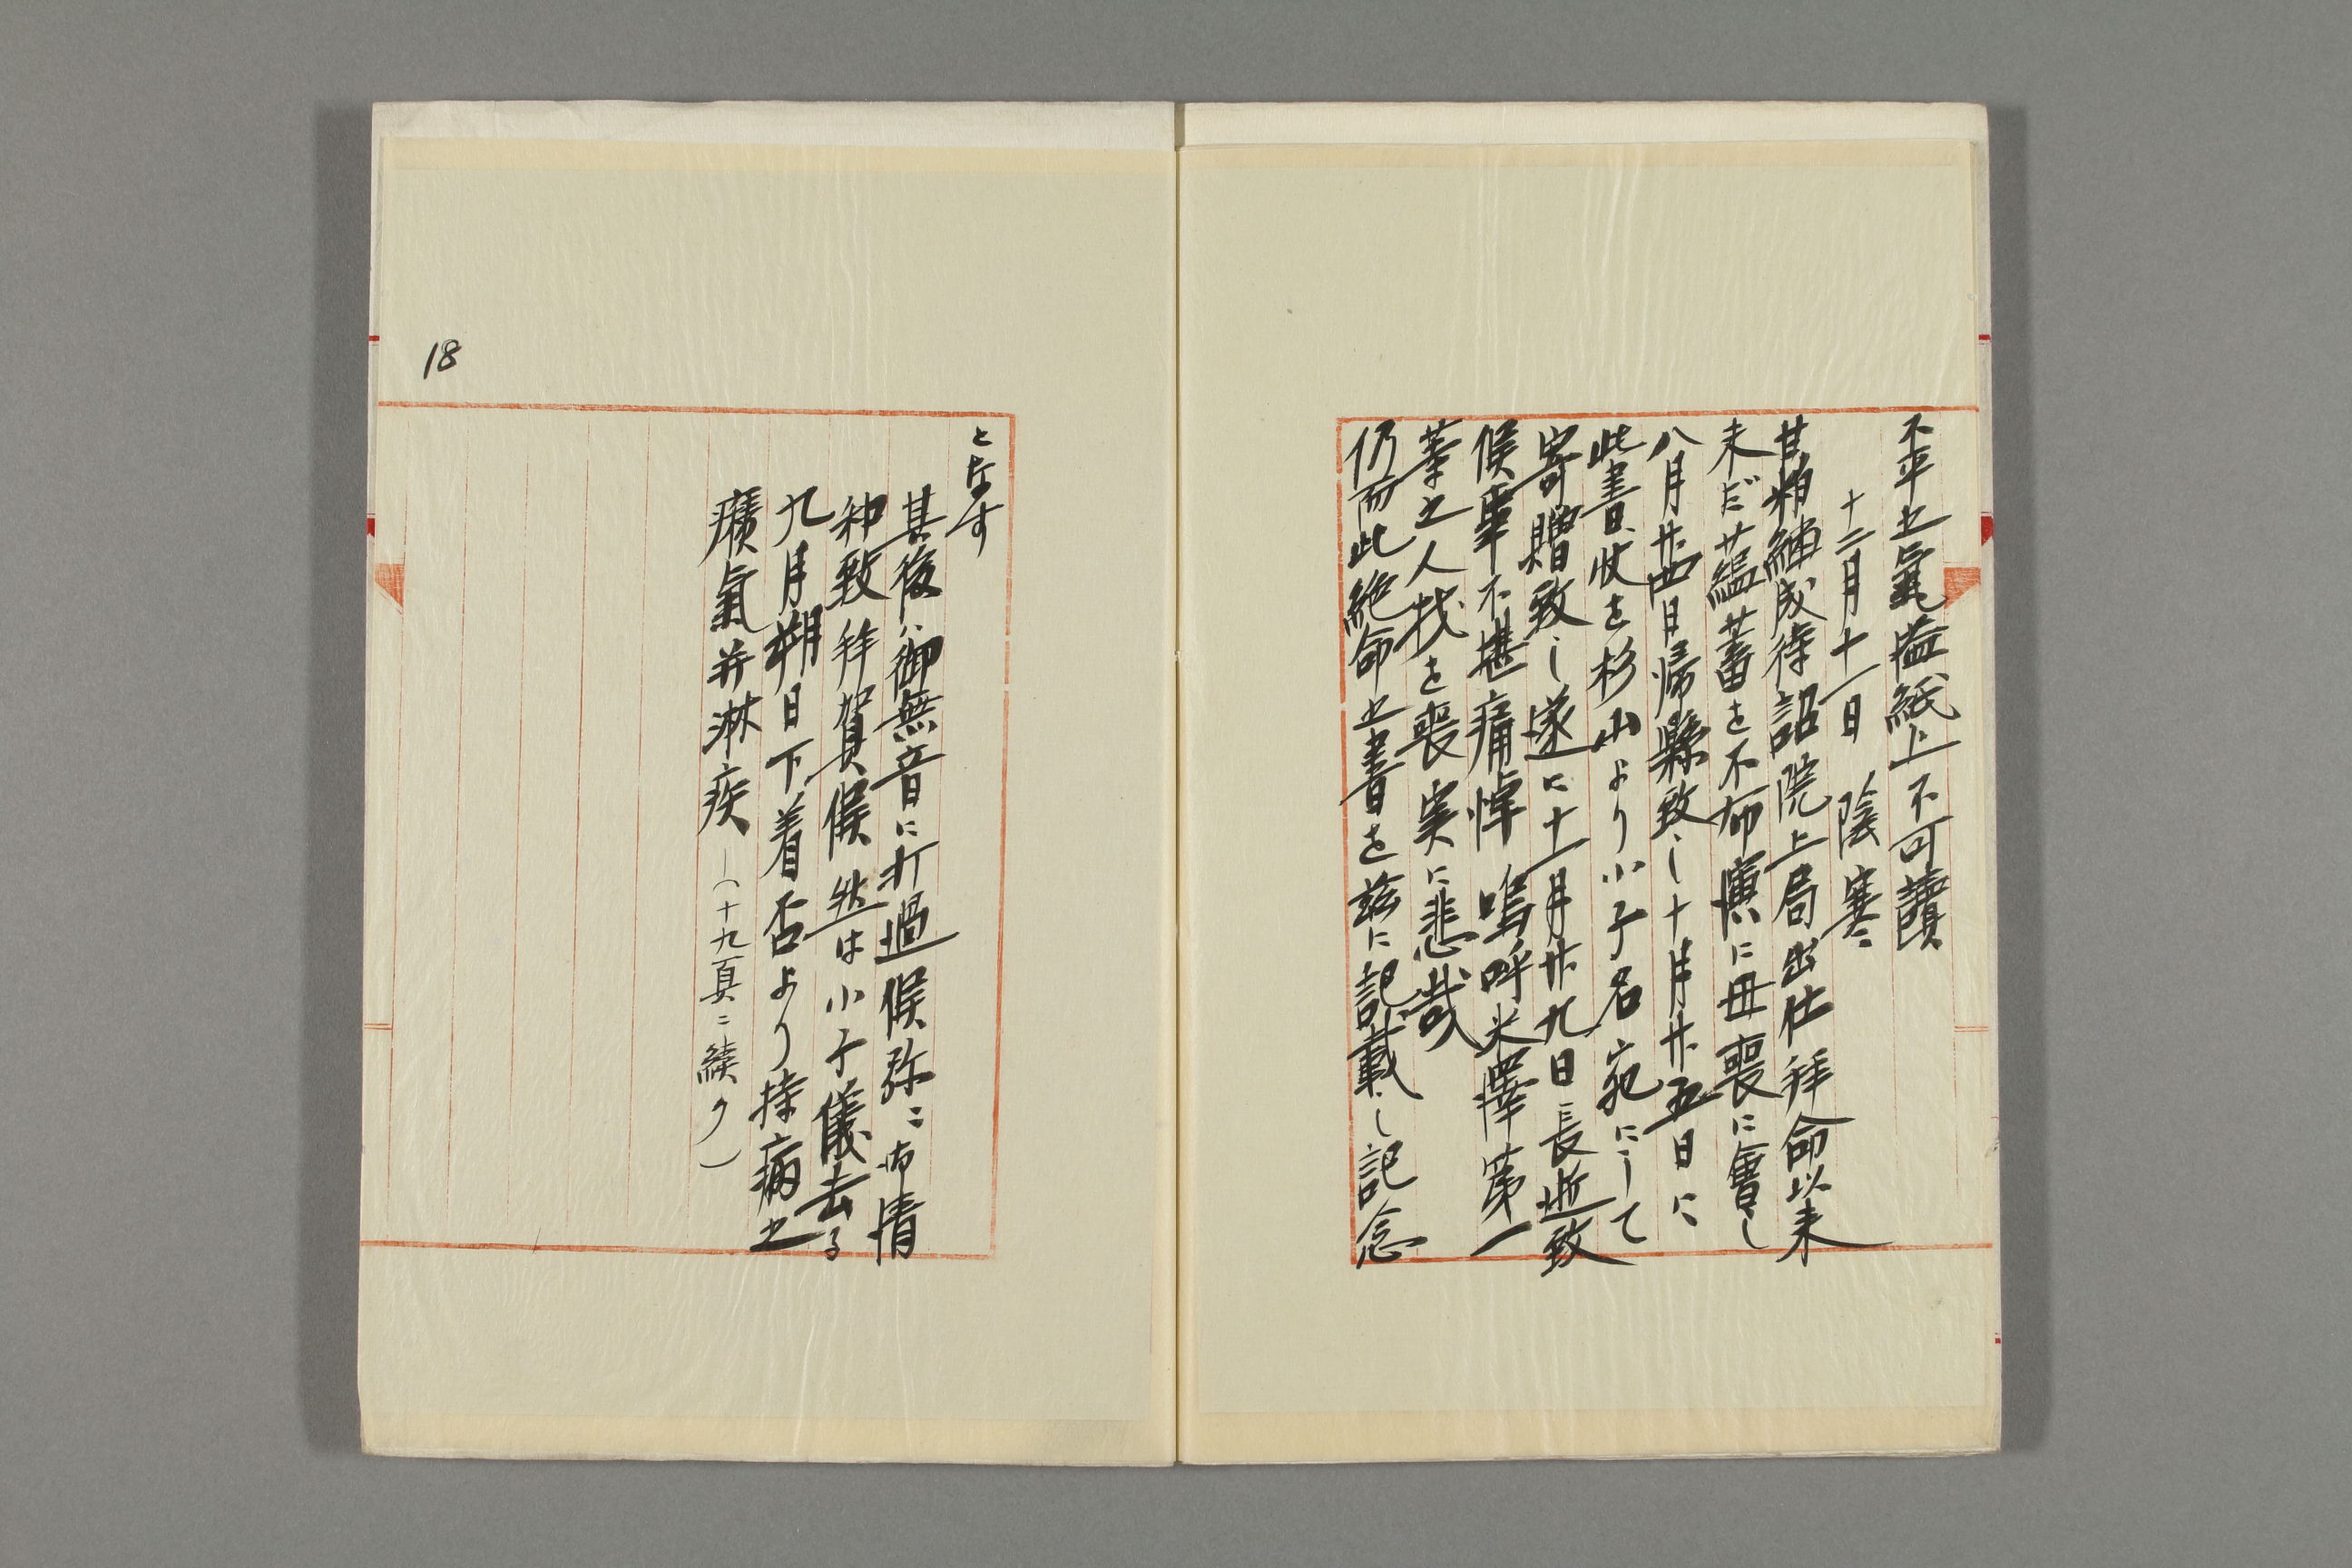 不平之氣溢紙上不可讀
十二月十一日 陰寒
甘粕継成待詔院上局出仕拝命以来
未だ蘊蓄を不布慎に毋喪に會し
八月廿四日帰縣致し十月廿五日に
此書日状を杉山より小子名宛にして
寄贈致し遂に十一月廿九日長逝致
候事不堪痛悼嗚呼米澤第一
等之人我を喪実に悲哉
仍而此絶命之書を茲に記載し記念
となす
其後ハ御無音に打過候弥ニ御情
和致拝賀候然は小子儀去る
九月朔日下着否より持病之
癪氣并淋疾―(十九頁ニ続ク)
18